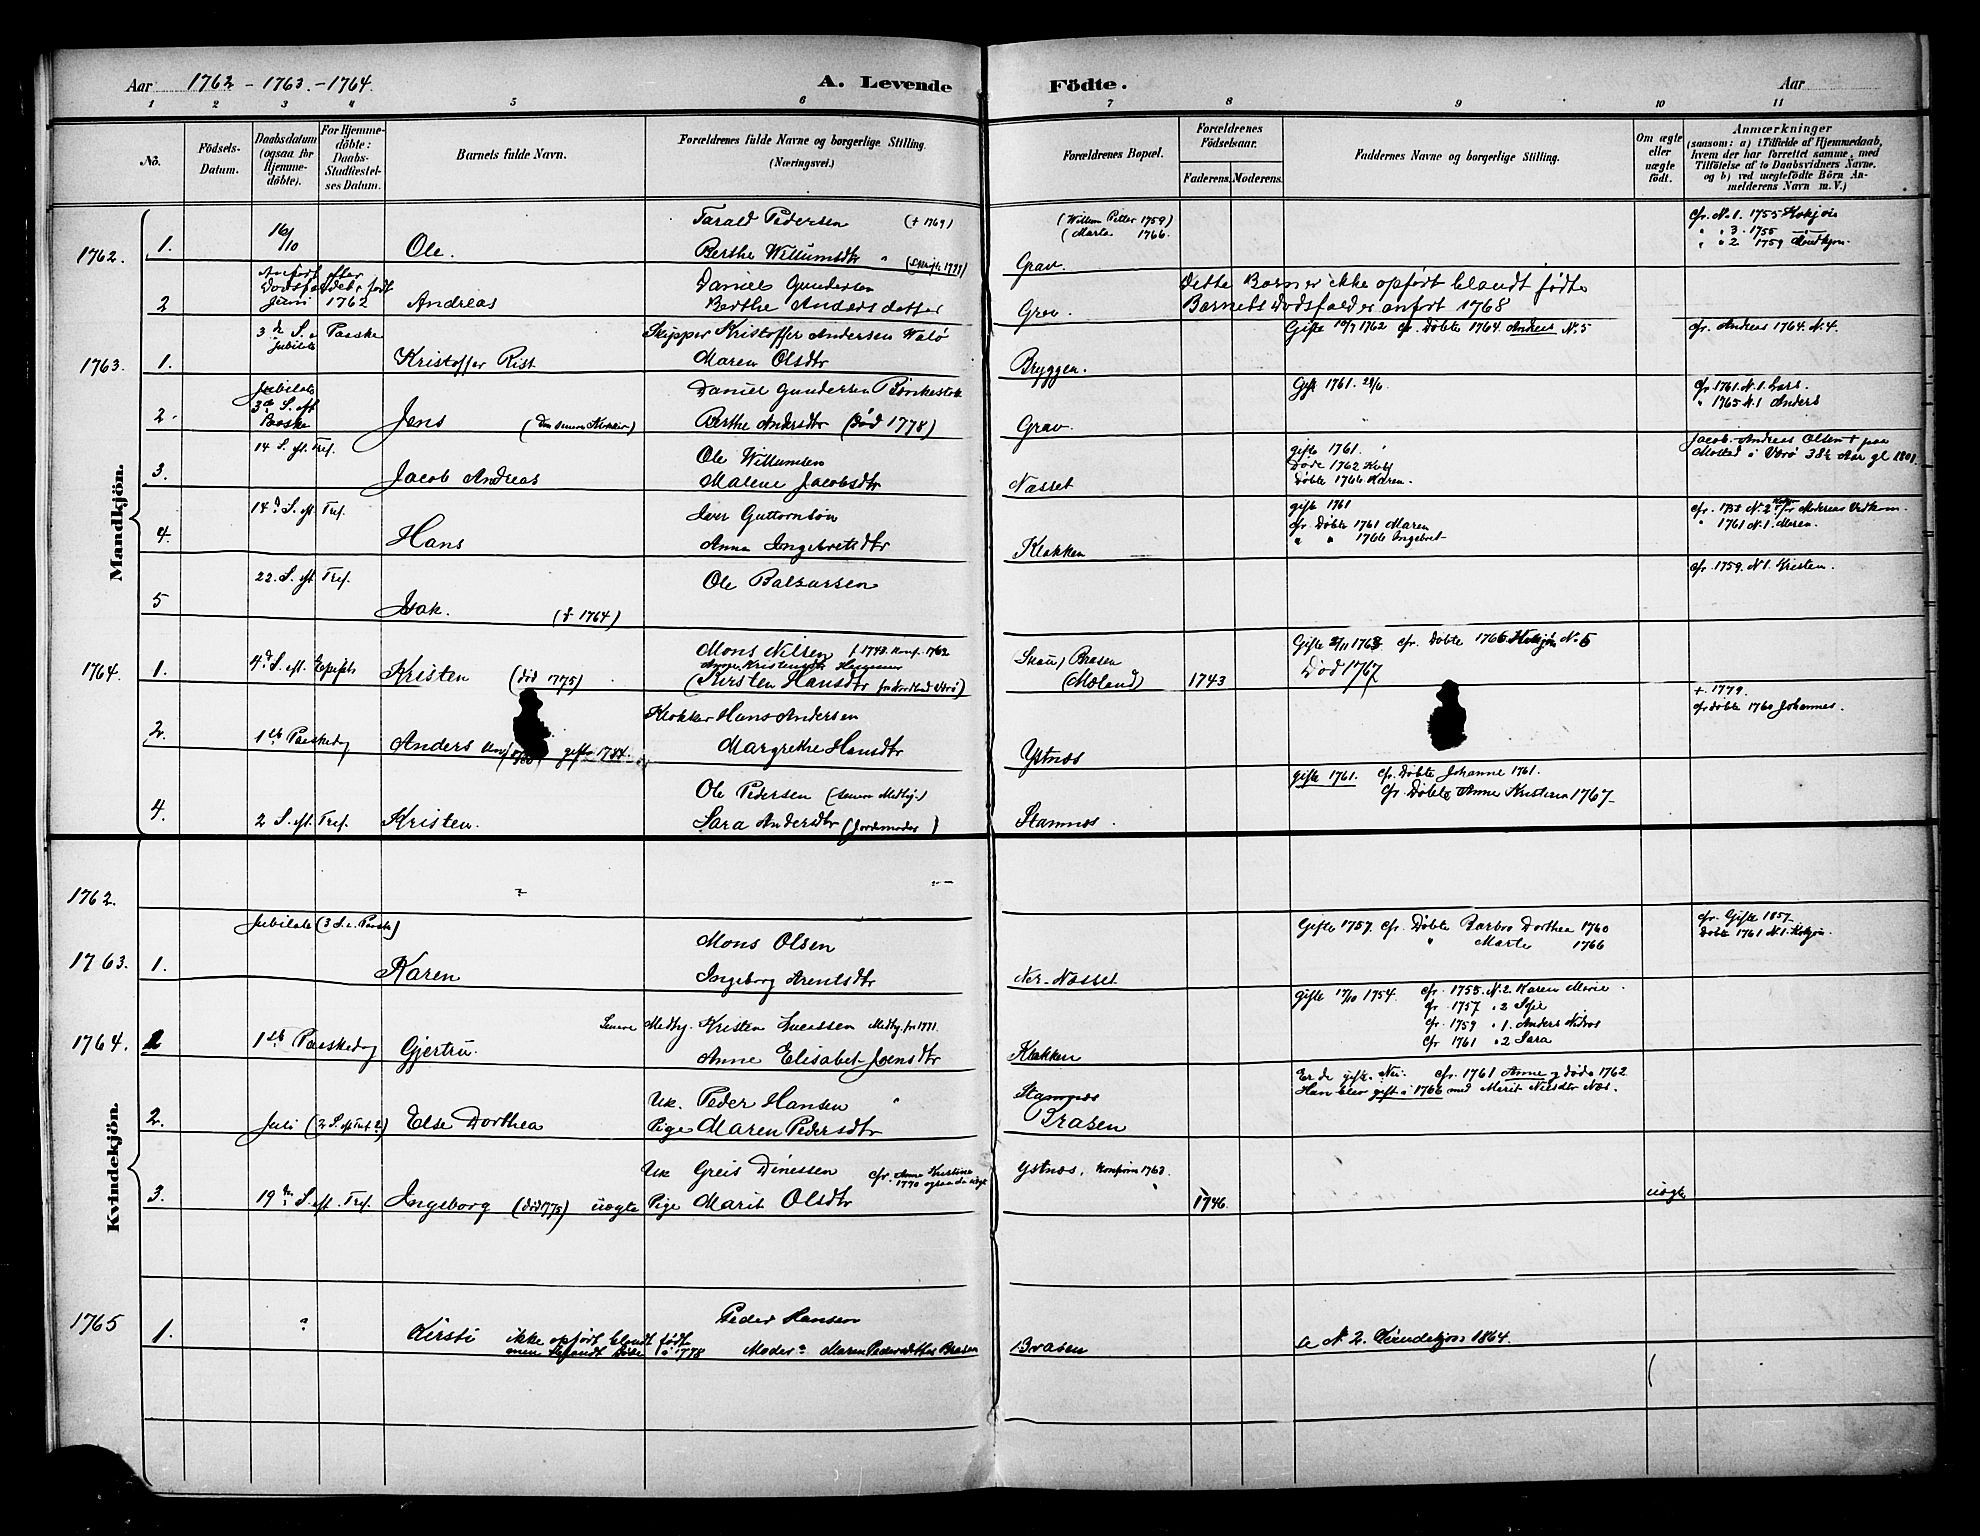 Aar 1762 - 1763. - 1764.
A. Levende Födte.
Aar
1 2 3 4 5 6 7 8 9 10 11
No.
Födsels-Datum.
Daabsdatum (ogsaa for Hjemme-döbte).
For Hjemme-döbte: Daabs-Stadfæstel-ses Datum.
Barnets fulde Navn.
Forældrenes fulde Navne og borgerlige Stilling. (Næringsvei.)
Forældrenes Bopæl.
Forældrenes Födselsaar.
Faderens. Moderens.
Faddernes Navne og borgerlige Stilling.
Om ægte eller uægte födt.
Anmærkninger
(saasom: a) i Tilfælde af Hjemmedaab, hvem der har forrettet samme, med Tilföielse af to Daabsvidners Navne. og b) ved uægtefödte Börn An-melderens Navn m. V.)
Mandkjön.
1762.
1. 16/10 Ole.
Tarald Pedersen (+ 1769)
Berthe Willumsdtr
(Willum Petter 1759)
(Marta 1766.
Grav.
cfr. No 1. 1755
" " 3. 1755
" " 2 1759
2 Anført efter Dødsfaldet født Juni 1762 Andreas
Daniel Gundersen
Berthe Andersdatter
Grav.
Dette Barn er ikke opført blandt fødte
Barnets Dødsfald er anført 1768
1763.
1. 3de S. Paaske Jubilate Kristoffer Rist
Skipper Kristoffer Andersen Walø
Maren Olsdtr
Bryggen.
Gifte 10/7 1762 cfr. Døbte 1764 Andreas No. 5
cfr. Andreas 1764. N. 4.
2. Jubilate 3de S. eft Paaske Jens
Daniel Gundersen
Berthe Andersdtr (død 1778)
Grav.
Gift 1761. 29/6
cfr. 1761. N. 1 Lars.
" 1765 N. 1 Anders
3. 14 S. eft. Tref. Jacob Andreas
Ole Willumsen
Malene Jacobsdtr
Næsset
gifte 1761.
Døde 1762
Døbte 1766 Karen.
Jacob Andreas Olsen + paa
Mosted i Værø 38½ Aar gl 1801.
4. 14d. S. eft. Tref. Hans
Iver Guttormsøn
Anna Ingebretsdtr
Klakken
gifte 1761
cfr Døbte 1761 Maren
" " 1766 Ingebret
" 1761 N. 1. Maren.
5 22. S. eft. Tref. Isak. (+ 1764)
Ole Balzarsen
cfr. 1759. N 1. Kristen.
1764.
1. 4d. S. eft. Epifph Kristen (død 1775)
Mons Nilsen f. 1743. Konf. 1762
(Kirsten Hansdtr
Brasen
(Moland)
1743
Død 1767
2. 1ste Paaskedag Anders gifte 1784.
Klokker Hans Andersen
Margrethe Hansdtr
Ystnæs
+ 1779.
cfr døbte 1760 Johannes.
4. 2 S. eft. Tref. Kristen.
Ole Pedersen (senere Medhj.)
Sara Andersdtr (Jordemoder)
Stamnæs.
gifte 1761. cfr. Døbte Johanne 1761.
cfr. Døbte Anne Kristine 1767.
Kvindekjön.
1762.
1763.
1. Jubilate (3 S. e. Paaske) Karen
Mons Olsen
Ingeborg Arentsdtr
Ner-Næsset
Gifte 1757. cfr. Døbte Barbro Dorthea 1760
" Marte 1766
cfr. Gifte 1857.
Døbt 1761 N. 1.
1764.
1ste Paaskedag Gjertru.
Senere Medhj. Kristen Medhj. fra 1771.
Anne Elisabet Joensdtr
Klakken
gifte 17/10 1754. cfr. 1755. N. 2. Karen Marie.
cfr. 1757 " 2 Sofie
cfr. 1759 " 1. Anders
cfr 1761 " 2 Sara
2. Juli (2 S. eft Tref ?) Else Dorthea
Uk. Peder Hansen
Pige Maren Pedersdtr
Stamnæs
Brasen
Er de gifte. Nei. cfr. 1761 Anne død 1762
Han blev gift i 1766 med Merit Nielsdtr Næs.
3. 19de S. eft. Tref. Ingeborg (død 1775) uægte
Uk Greis Dinessen cfr. Anne Kristine 1770 ogsaa da uægt
Pige Marit Olsdtr
Ystnæs, Konfirm 1763
1746.
uægte
1765
1. ? Kirsti ikke opført blandt født
men blandt døde i 1778
Peder Hansen
Moder ? Maren Pedersdatter Brasen
Brasen
N 2. Kvindekjøn 1864.